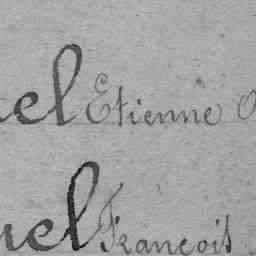 el Etienne
uel François